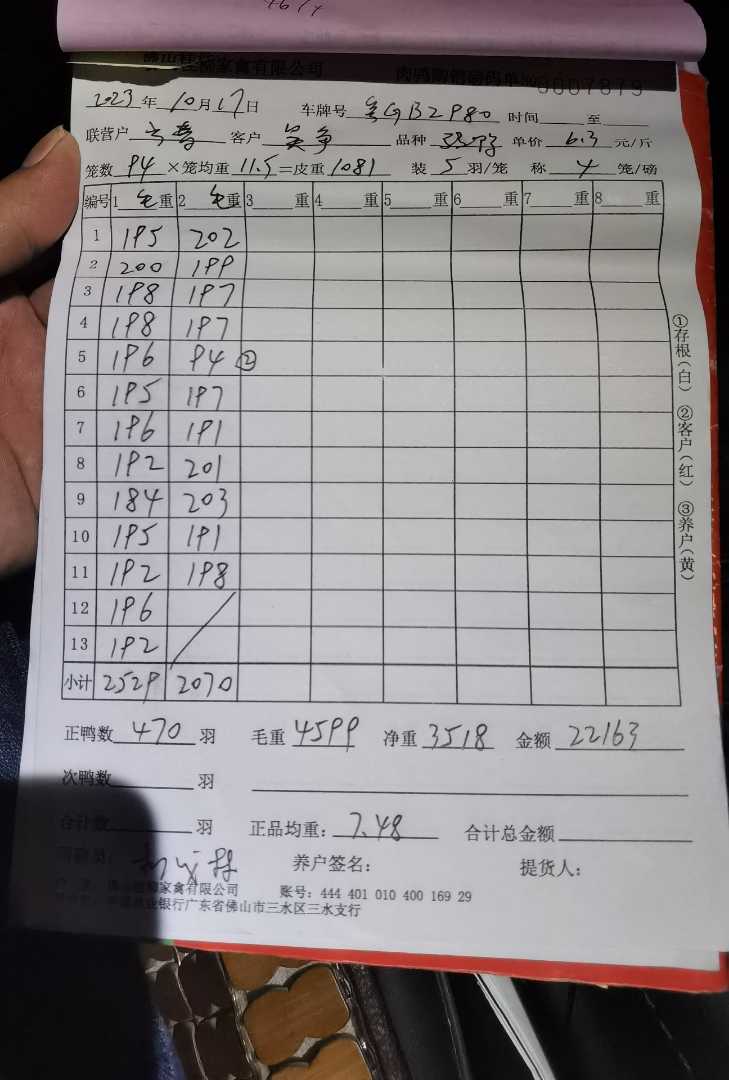 家禽有限公司 肉鸭购销磅码单 №0007879
2023年10月17日 车牌号 GB2980 时间 至
联营户 客户 吴争 品种 单价 6.3 元/斤
笼数 94 ×笼均重 11.5 =皮重 1081 装 5 羽/笼 称 4 笼/磅
编号 1 毛重 2 毛重 3 重 4 重 5 重 6 重 7 重 8 重
1 195 202
2 200 199
3 198 197
4 198 197
5 196 94 ②
6 195 197
7 196 191
8 192 201
9 184 203
10 195 191
11 192 198
12 196
13 192
小计 2529 2070
①存根(白) ②客户(红) ③养户(黄)
正鸭数 470 羽 毛重 4599 净重 3518 金额 22163
次鸭数 羽
合计数 羽 正品均重: 7.48 合计总金额
养户签名: 提货人:
家禽有限公司 账号: 444 401 010 400 169 29
业银行广东省佛山市三水区三水支行